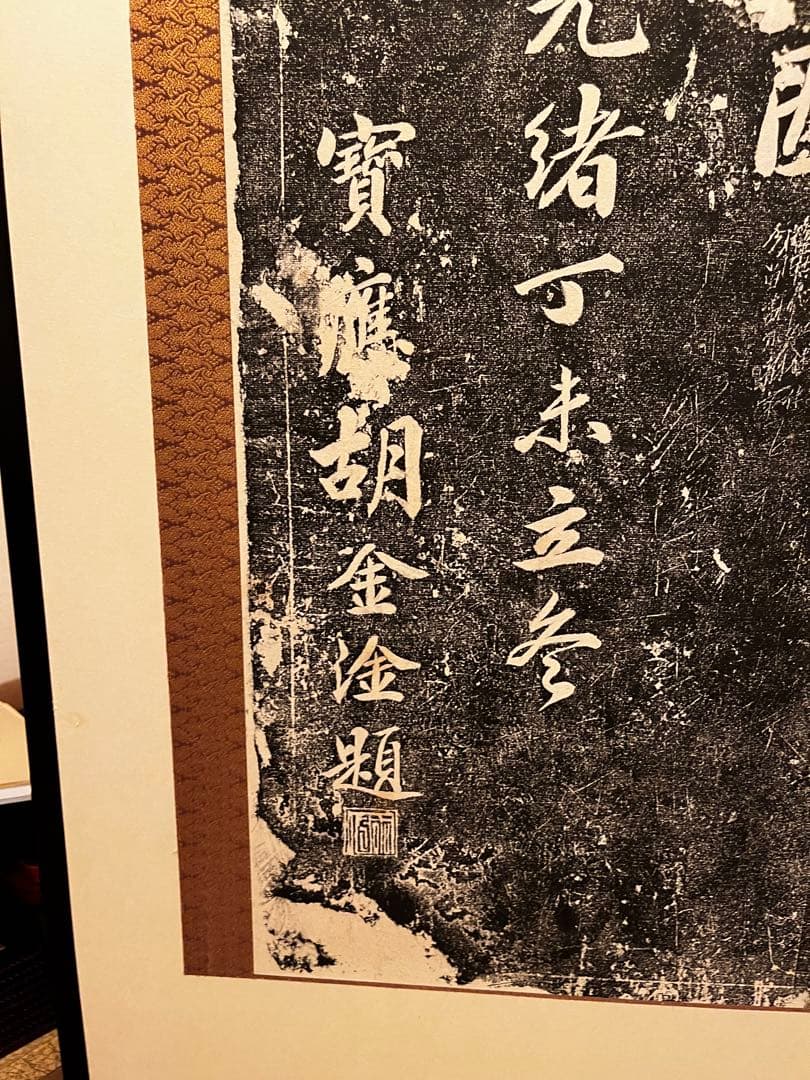 光緒丁未立冬
寶應胡金淦題